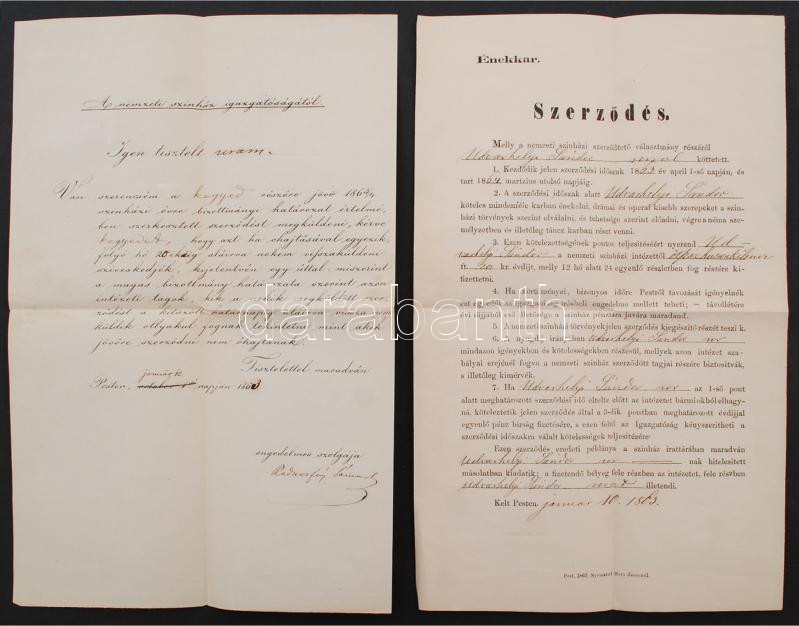 A nemzeti szinház igazgatóságától.
Igen tisztelt uram.
Van szerencsém a kegyed részére jövő 1863/4
szinházi évre bizottmányi határozat értelmé-
ben szerkesztett szerződést megküldeni, kérve
kegyedet, hogy azt ha óhajtásával egyezik,
folyó hó 20ikáig aláirva nekem visszaküldeni
sziveskedjék, kijelentvén egy úttal, miszerint
a magas bizottmány határozata szerint azon
intézeti tagok, kik a nekik megküldött szer-
ződést a kitüzött határnapig aláirva vissza nem
küldik ollyakul fognak tekintetni mint akik
jövőre szerződni nem óhajtanak.
Tisztelettel maradván
január 12
Pesten, october 1ső napján 1863
engedelmes szolgája
Radnotfáy Sámuel
Énekkar.
Szerződés.
Melly a nemzeti szinházi szerződtető választmány részéről
Udvarhelyi Sándor urral köttetett.
1. Kezdődik jelen szerződési időszak 1863 év april 1-ső napján, és
tart 1864 martzius utolsó napjáig.
2. A szerződési időszak alatt Udvarhelyi Sándor
köteles mindenféle karban énekelni, drámai és operai kisebb szerepeket a szin-
házi törvények szerint elválalni, és tehetsége szerint előadni, végre a néma sze-
mélyzetben és illetőleg táncz karban részt venni.
3. Ezen kötelezettségének pontos teljesitéseért nyerend Ud-
varhelyi Sándor a nemzeti szinház intézettől
ft. kr. évdijt, melly 12 hó alatt 24 egyenlő részletben fog részére ki-
fizettetni.
4. Ha körülményei, bizonyos időre Pestrőli távozását igénylenék
ezt egyedül az igazgatóság irásbeli engedelme mellett teheti; — távollétére
évi dijjából eső illetősége a szinház pénztára javára maradand.
5. A nemzeti szinházi törvények jelen szerződés kiegészitő részét teszi k.
6. A nyugdij irányában Udvarhelyi Sándor ur
mindazon igényekben és kötelességekben részesül, mellyek azon intézet sza-
bályai erejénél fogva a nemzeti szinház illető tagjai részére biztositvák,
a illetőleg kimérvék.
7. Ha Udvarhelyi Sándor ur az 1-ső pont
alatt meghatározott szerződési idő eltelte előtt az intézetet bármi okból elhagy-
ná, köteleztetik jelen szerződés által a 3-dik pontban meghatározott évdijjal
egyenlő pénz birság fizetésére, a ezen felül az Igazgatóság kényszeritheti a
szerződési időszakra válalt kötelességek teljesitésére
Ezen szerződés eredeti példánya a szinház irattárában maradván
Udvarhelyi Sándor ur nak hitelesitett
másolatban kiadatik; a fizetendő bélyeg fele részben az intézetet, fele részben
Udvarhelyi Sándor urat illetendi.
Kelt Pesten, január 10. 1863.
Pest, 1862. Nyomatott Herz Jánosnál.
darabanth